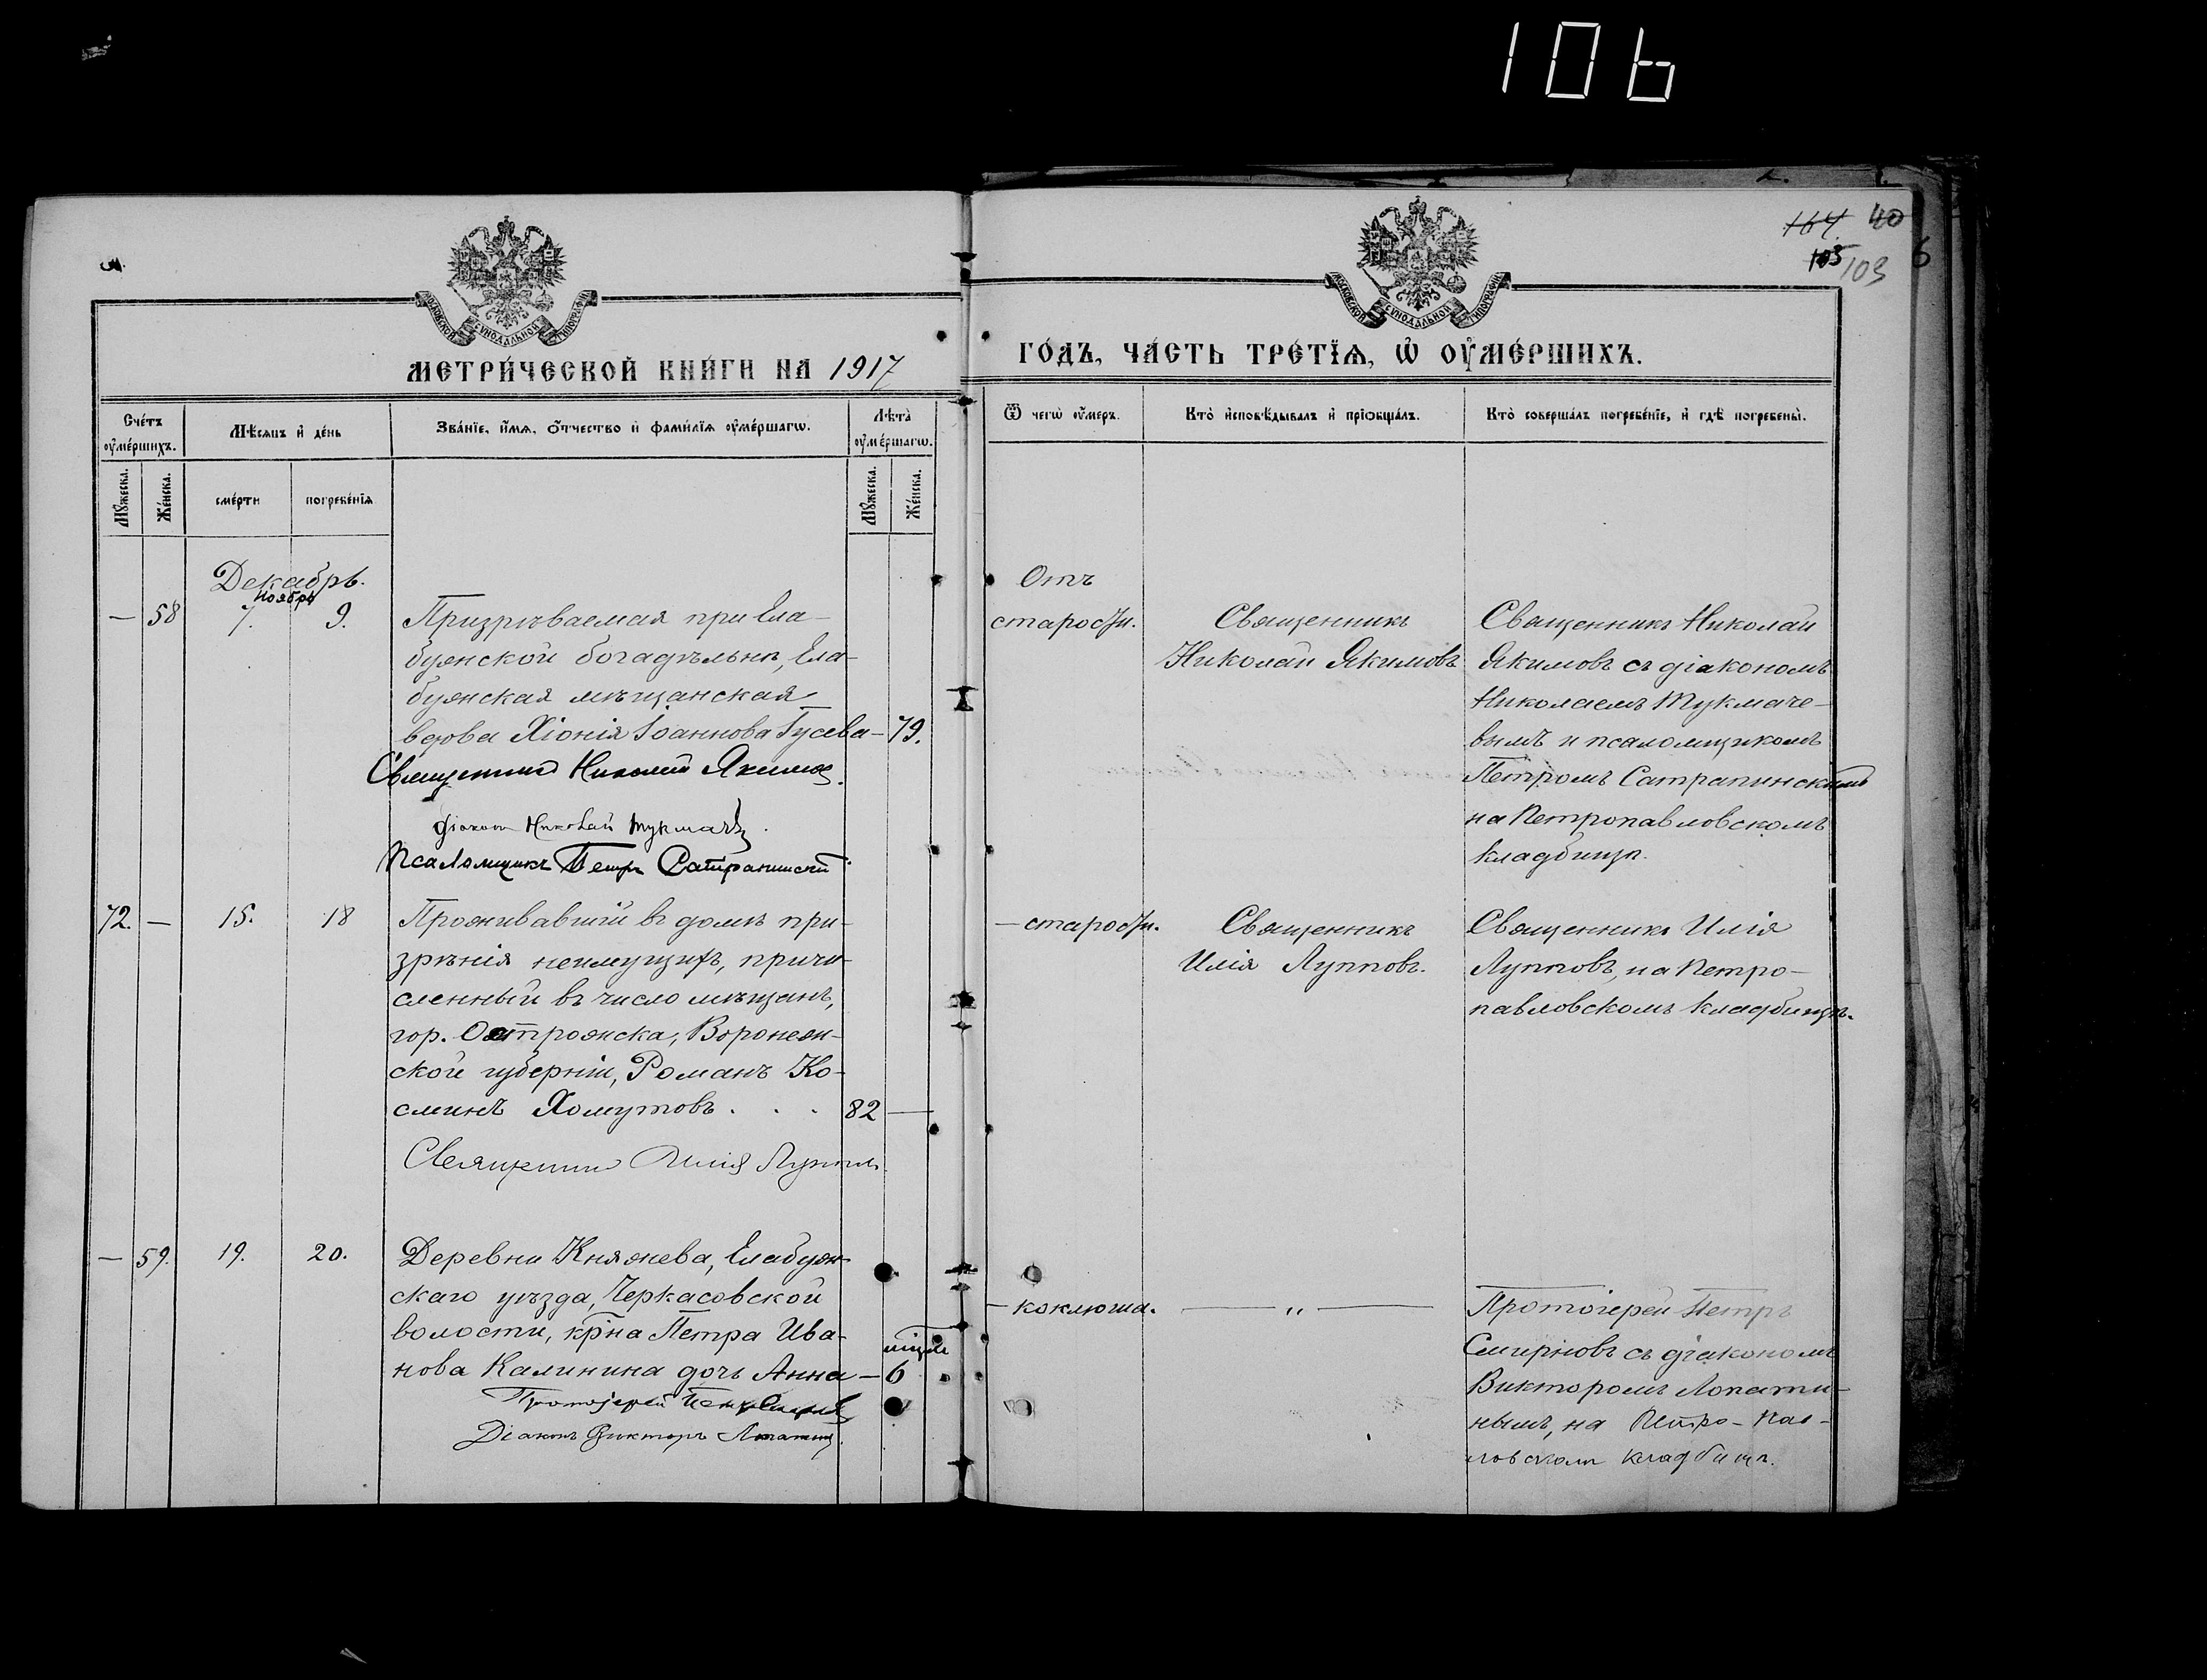 106
164 40
105 103 6
МОСКОВСКОЙ СѴНОДАЛЬНОЙ ТИПОГРАФІИ
МОСКОВСКОЙ СѴНОДАЛЬНОЙ ТИПОГРАФІИ
МЕТРИ́ЧЕСКОЙ КНИ́ГИ НА 1917
ГО́ДЪ, ЧА́СТЬ ТРЕ́ТЇѦ, Ѡ҆ ОУ҆МЕ́РШИХЪ.
Сче́тъ оу҆ме́ршихъ.
Мѣ́сѧцъ и҆ де́нь
Зва́нїе, и҆́мѧ, ѻ҆́тчество и҆ фами́лїѧ оу҆ме́ршагѡ.
Лѣ́та оу҆ме́ршагѡ.
Ѿ чегѡ̀ оу҆́меръ.
Кто̀ и҆сповѣ́дывалъ и҆ прїѡбща́лъ.
Кто̀ соверша́лъ погребе́нїе, и҆ гдѣ̀ погребены̀.
Мꙋ́жеска.
Же́нска.
сме́рти
погребе́нїѧ
Мꙋ́жеска.
Же́нска.
Декабрь.
Ноябрь
— 58 7. 9.
Призрѣваемая при Ела-
бужской богадѣльнѣ, Ела-
бужская мѣщанская
вдова Хіонія Іоаннова Гусева — 79.
Священникъ Николай Якимовъ.
Діаконъ Николай Тукмачевъ.
Псаломщикъ Петръ Сатрапинскій
Отъ
старости.
Священникъ
Николай Якимовъ
Священникъ Николай
Якимовъ съ діакономъ
Николаемъ Тукмаче-
вымъ и псаломщикомъ
Петромъ Сатрапинскимъ
на Петропавловскомъ
кладбищѣ.
72. — 15. 18
Проживавшій въ домѣ при-
зрѣнія неимущихъ, причи-
сленный въ число мѣщанъ,
гор. Острожска, Воронеж-
ской губерніи, Романъ Ко-
сминъ Хомутовъ . . . 82 —
Священникъ Илія Лупповъ.
— старости.
Священникъ
Илія Лупповъ.
Священникъ Илія
Лупповъ, на Петро-
павловскомъ кладбищѣ.
— 59. 19. 20.
Деревни Княжева, Елабуж-
скаго уѣзда, Черкасовской
волости, кр̄на Петра Ива-
нова Калинина дочь Анна — 6
Протоіерей Петръ Смирновъ
Діаконъ Викторъ Лопатинъ.
— коклюша.
— „ —
Протоіерей Петръ
Смирновъ съ діакономъ
Викторомъ Лопати-
нымъ, на Петро-Пав-
ловскомъ кладбищѣ.